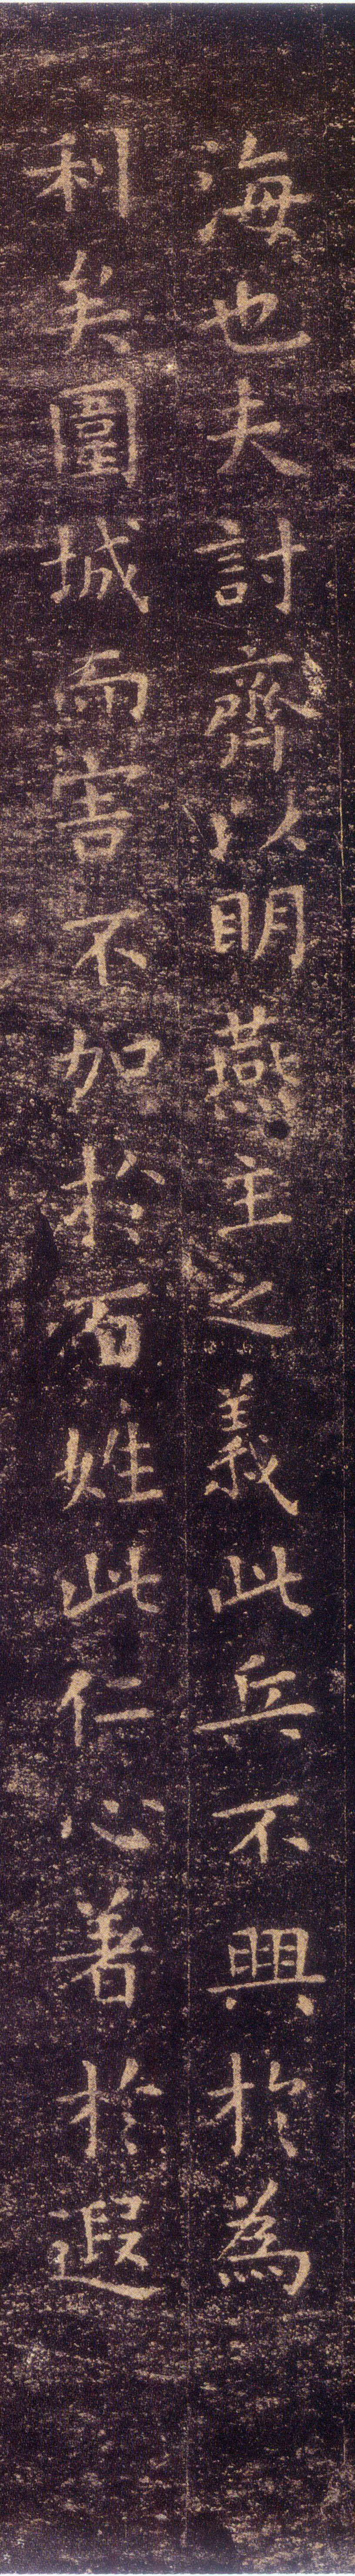 海也夫討齊以明燕主之義此兵不興於為
利矣圍城而害不加於百姓此仁心著於遐